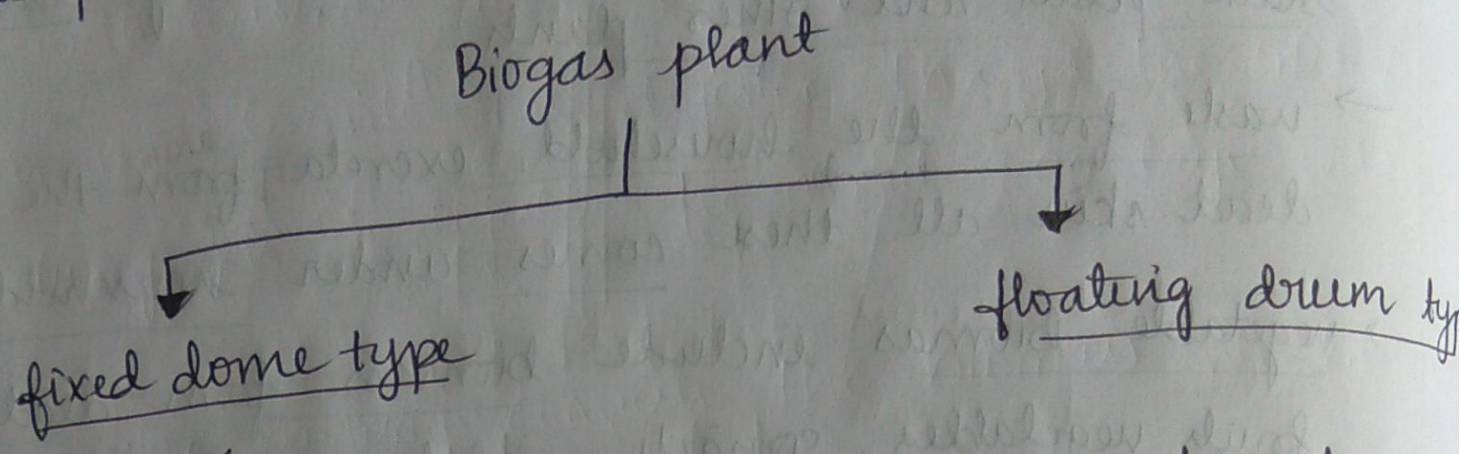 Biogas plant
fixed dome type
floating drum ty